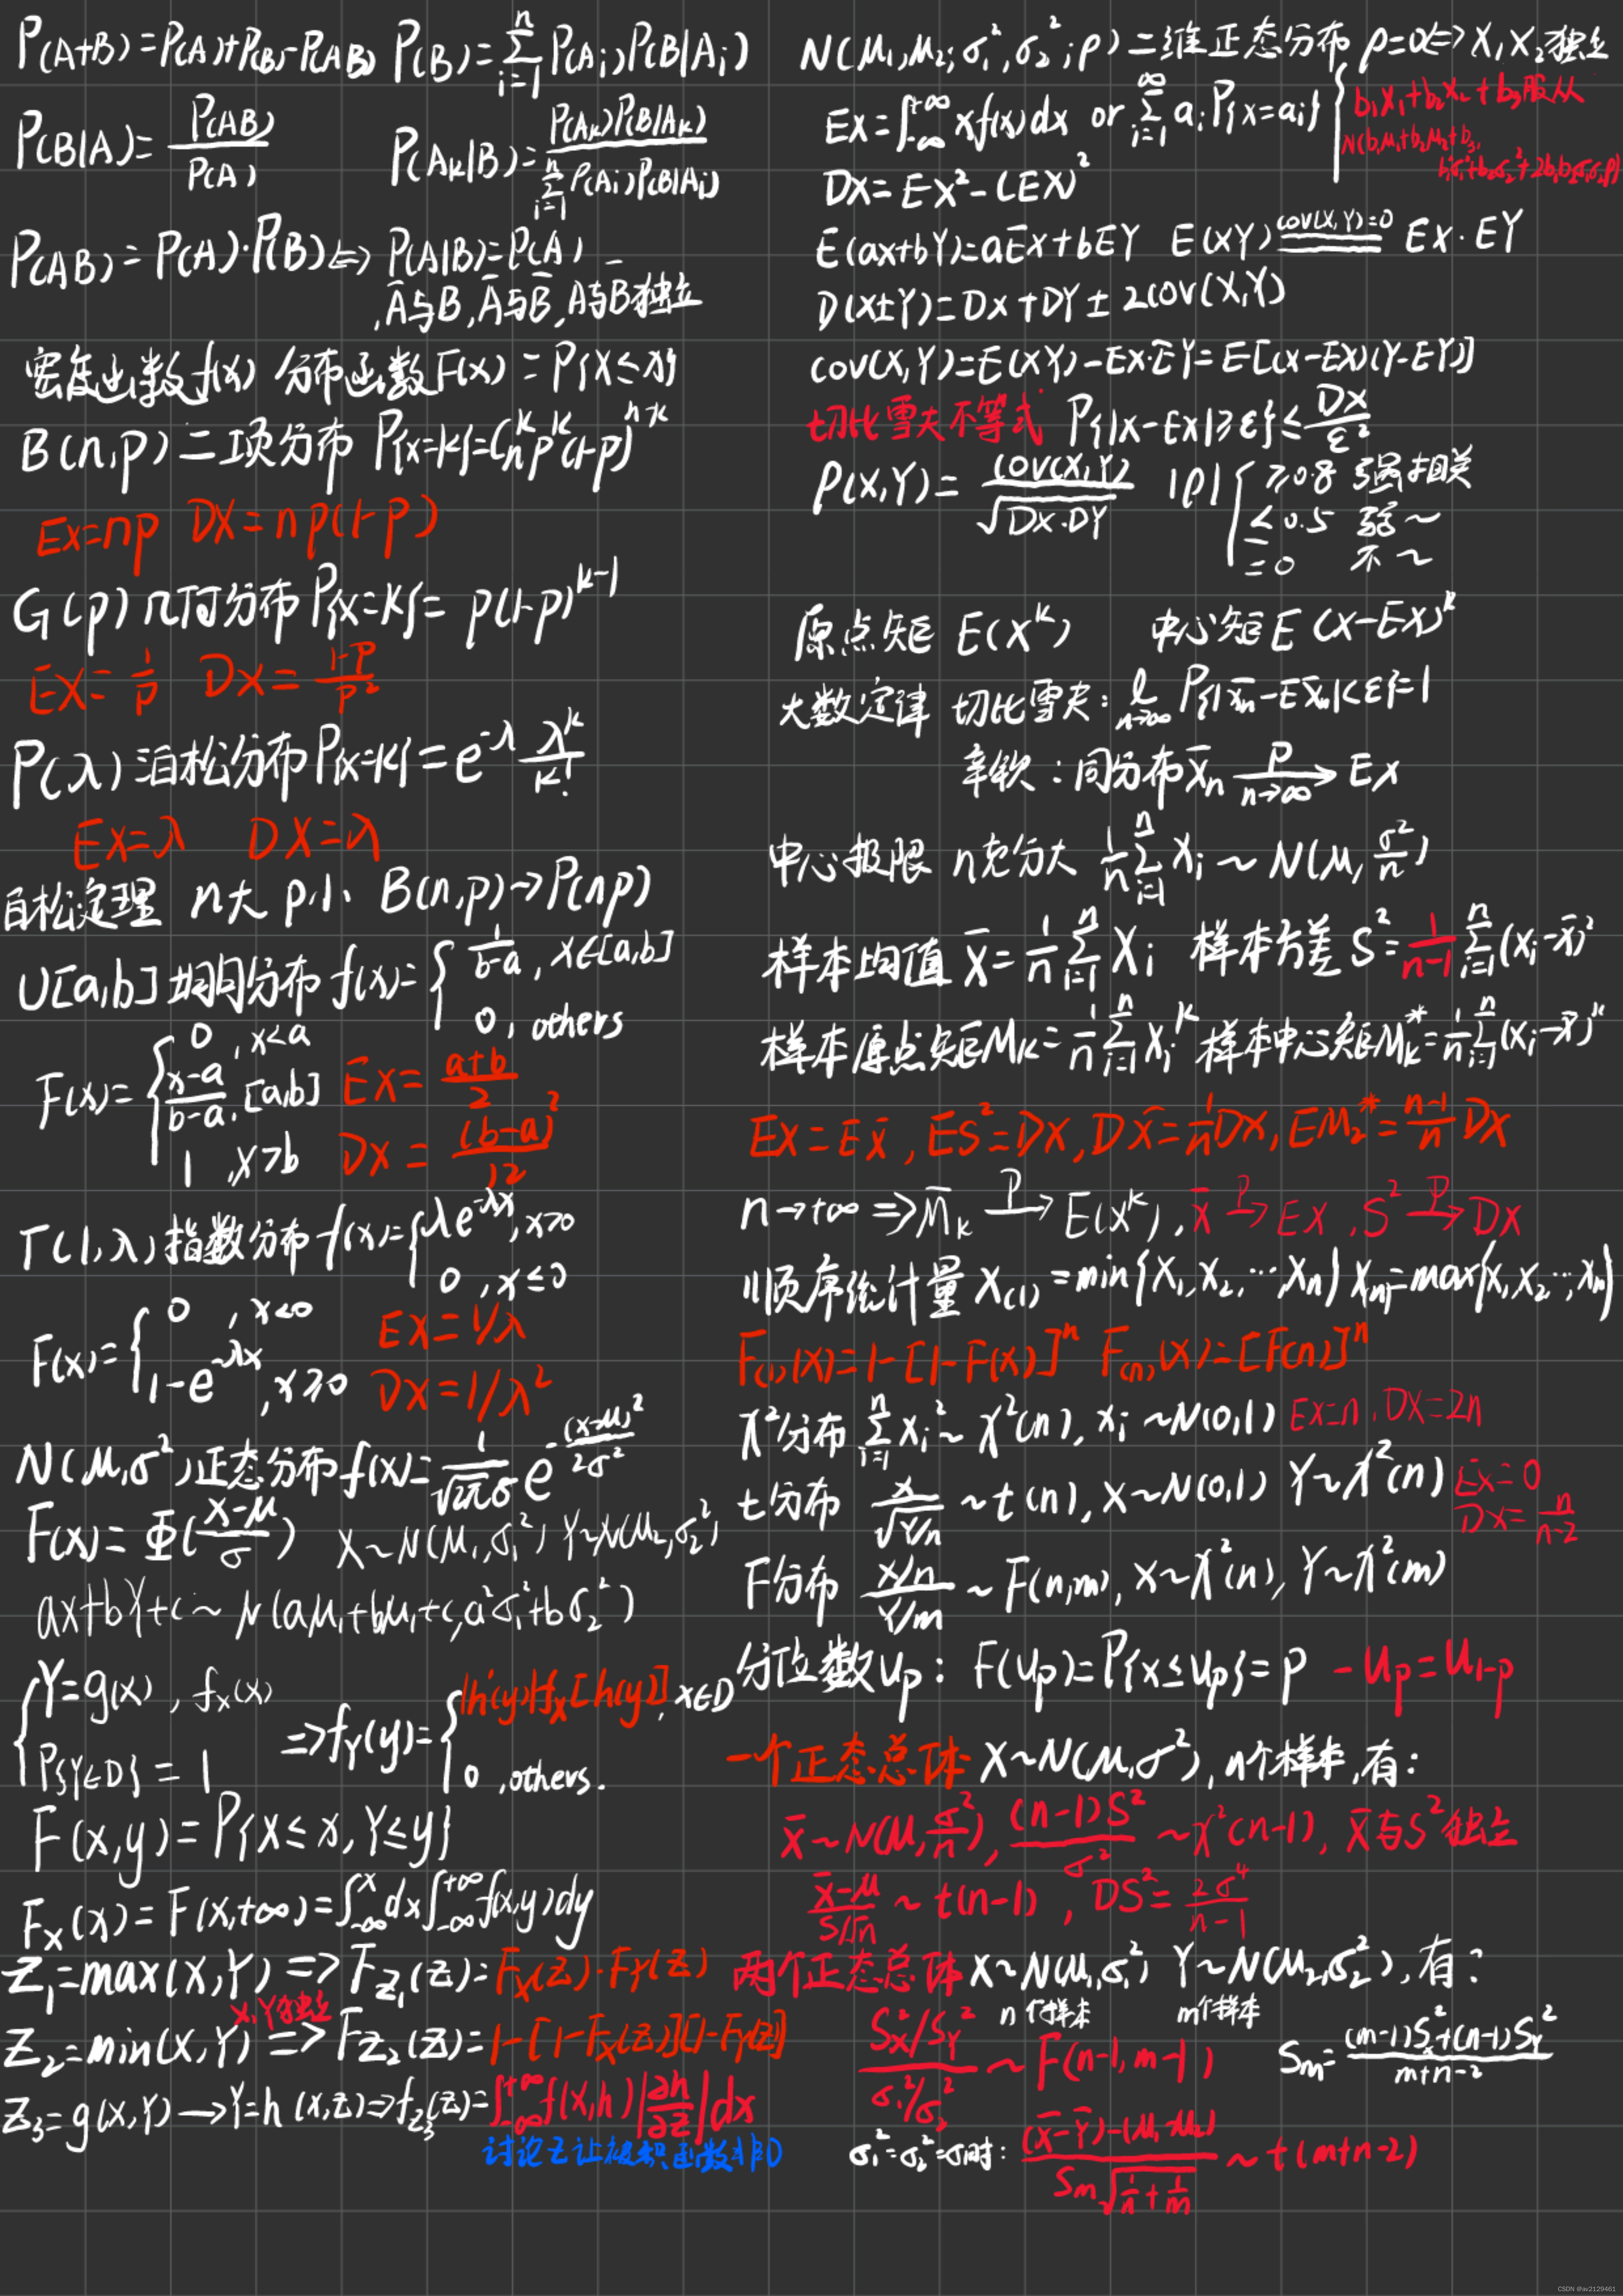 P(A+B)=P(A)+P(B)-P(AB) P(B)=∑_{i=1}^{n}P(Ai)P(B|Ai)
P(B|A)=P(AB)/P(A) P(Ak|B)=P(Ak)P(B|Ak)/∑_{i=1}^{n}P(Ai)P(B|Ai)
P(AB)=P(A)·P(B)⇔P(A|B)=P(A)
,Ā与B,Ā与B̄,A与B̄独立
密度函数f(x) 分布函数F(x)=P{X≤x}
B(n,p)二项分布 P{x=k}=C_n^k p^k(1-p)^{n-k}
EX=np DX=np(1-p)
G(p)几何分布P{x=k}=p(1-p)^{k-1}
EX=1/p DX=(1-p)/p²
P(λ)泊松分布P{x=k}=e^{-λ} λ^k/k!
EX=λ DX=λ
泊松定理 n大 p小 B(n,p)→P(np)
U[a,b]均匀分布f(x)={1/(b-a),x∈[a,b]
0,others
F(x)={0,x<a
(x-a)/(b-a),[a,b]
1,x>b
EX=(a+b)/2
DX=(b-a)²/12
Γ(1,λ)指数分布f(x)={λe^{-λx},x>0
0,x≤0
F(x)={0,x<0
1-e^{-λx},x≥0
EX=1/λ
DX=1/λ²
N(μ,σ²)正态分布f(x)=1/(√2π σ) e^{-(x-μ)²/2σ²}
F(x)=Φ((x-μ)/σ) X~N(μ₁,σ₁²) Y~N(μ₂,σ₂²)
ax+bY+c~N(aμ₁+bμ₁+c,a²σ₁²+bσ₂²)
{Y=g(x),f_X(x)
P{Y∈D}=1
⇒f_Y(y)={|h'(y)|f_X[h(y)],x∈D
0,others.
F(x,y)=P{X≤x,Y≤y}
F_X(x)=F(x,+∞)=∫_{-∞}^{x}dx∫_{-∞}^{+∞}f(x,y)dy
Z₁=max(X,Y)⇒F_{Z₁}(z)=F_X(z)·F_Y(z)
X,Y独立
Z₂=min(X,Y)⇒F_{Z₂}(z)=1-[1-F_X(z)][1-F_Y(z)]
Z₃=g(X,Y)→Y=h(x,z)⇒f_{Z₃}(z)=∫_{-∞}^{+∞}f(x,h)|∂h/∂z|dx
讨论z让被积函数非0
N(μ₁,μ₂;σ₁²,σ₂²;ρ)二维正态分布 ρ=0⇔X₁X₂独立
b₁X₁+b₂X₂+b₃服从
N(b₁μ₁+b₂μ₂+b₃,
b₁²σ₁²+b₂σ₂²+2b₁b₂σ₁σ₂ρ)
EX=∫_{-∞}^{+∞}xf(x)dx or ∑_{i=1}^{∞}aᵢP{x=aᵢ}
DX=EX²-(EX)²
E(ax+bY)=aEX+bEY E(XY) =cov(X,Y)=0= EX·EY
D(X±Y)=DX+DY±2cov(X,Y)
cov(X,Y)=E(XY)-EX·EY=E[(X-EX)(Y-EY)]
切比雪夫不等式 P{|X-EX|≥ε}≤DX/ε²
ρ(X,Y)=cov(X,Y)/√DX·DY |ρ|{≥0.8 强相关
≤0.5 弱~
=0 不~
原点矩 E(X^k) 中心矩E(X-EX)^k
大数定律 切比雪夫:l_{n→∞}P{|x̄n-Ex̄n|<ε}=1
辛钦:同分布x̄n →^P_{n→∞} EX
中心极限 n充分大 1/n ∑_{i=1}^{n}Xi~N(μ,σ²/n)
样本均值X̄=1/n ∑_{i=1}^{n}Xi 样本方差S²=1/(n-1) ∑_{i=1}^{n}(xi-x̄)²
样本原点矩M_k=1/n ∑_{i=1}^{n}Xi^k 样本中心矩M_k*=1/n ∑_{i=1}^{n}(xi-x̄)^k
EX=EX̄,ES²=DX,DX̄=1/n DX,EM₂*=(n-1)/n DX
n→+∞⇒M̄_k →^P E(X^k),x̄ →^P EX,S² →^P DX
顺序统计量X(1)=min{X₁,X₂,…,Xn} X(n)=max{X₁,X₂…,Xn}
F(1)(x)=1-[1-F(x)]^n F(n)(x)=[F(n)]^n
χ²分布 ∑_{i=1}^{n}Xi²~χ²(n),xi~N(0,1) EX=n,DX=2n
t分布 X/√(Y/n)~t(n),X~N(0,1) Y~χ²(n) EX=0
DX=n/(n-2)
F分布 (X/n)/(Y/m)~F(n,m),X~χ²(n),Y~χ²(m)
分位数Up:F(Up)=P{x≤Up}=p -Up=U₁₋p
一个正态总体 X~N(μ,σ²),n个样本,有:
x̄~N(μ,σ²/n),(n-1)S²/σ²~χ²(n-1),x̄与S²独立
(x̄-μ)/(S/√n)~t(n-1),DS²=2σ⁴/(n-1)
两个正态总体X~N(μ₁,σ₁²) Y~N(μ₂,σ₂²),有:
n个样本 m个样本
(Sx²/SY²)/(σ₁²/σ₂²)~F(n-1,m-1) Sm=((m-1)Sx²+(n-1)SY²)/(m+n-2)
σ₁²=σ₂²=σ时:((X̄-Ȳ)-(μ₁-μ₂))/(Sm√(1/n+1/m))~t(m+n-2)
CSDN @av2129461